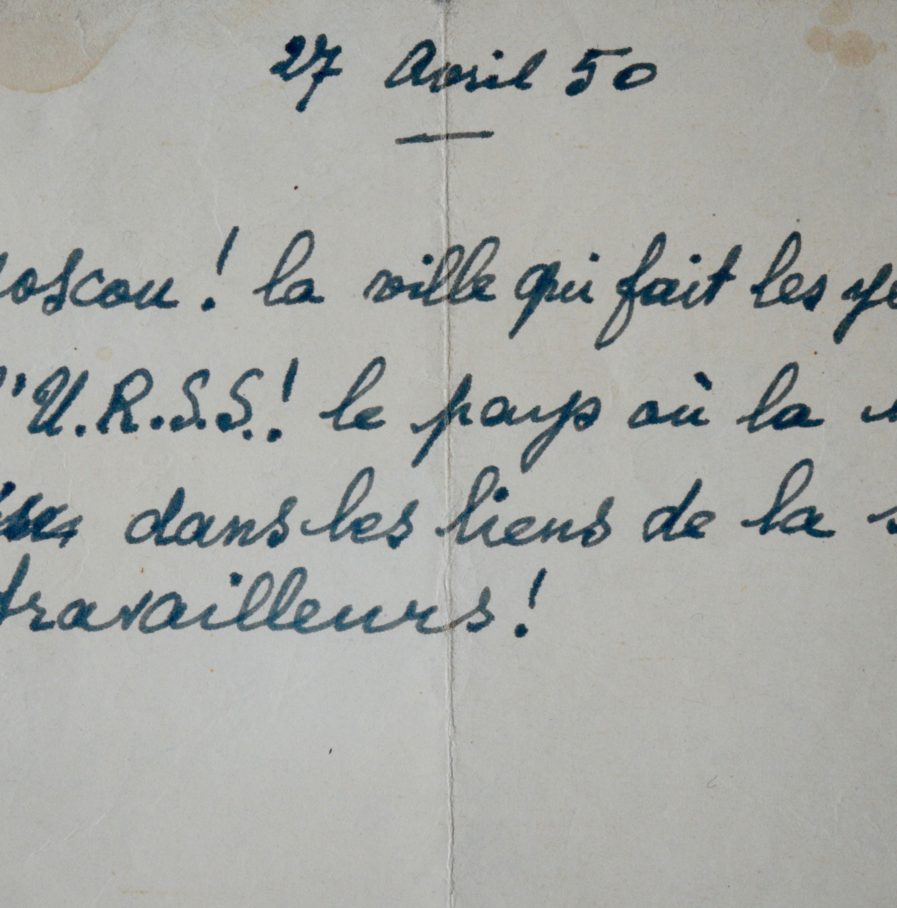 27 Avril 50
oscou ! la ville qui fait les ye
l'U.R.S.S.! le pays où la
dans les liens de la
travailleurs !